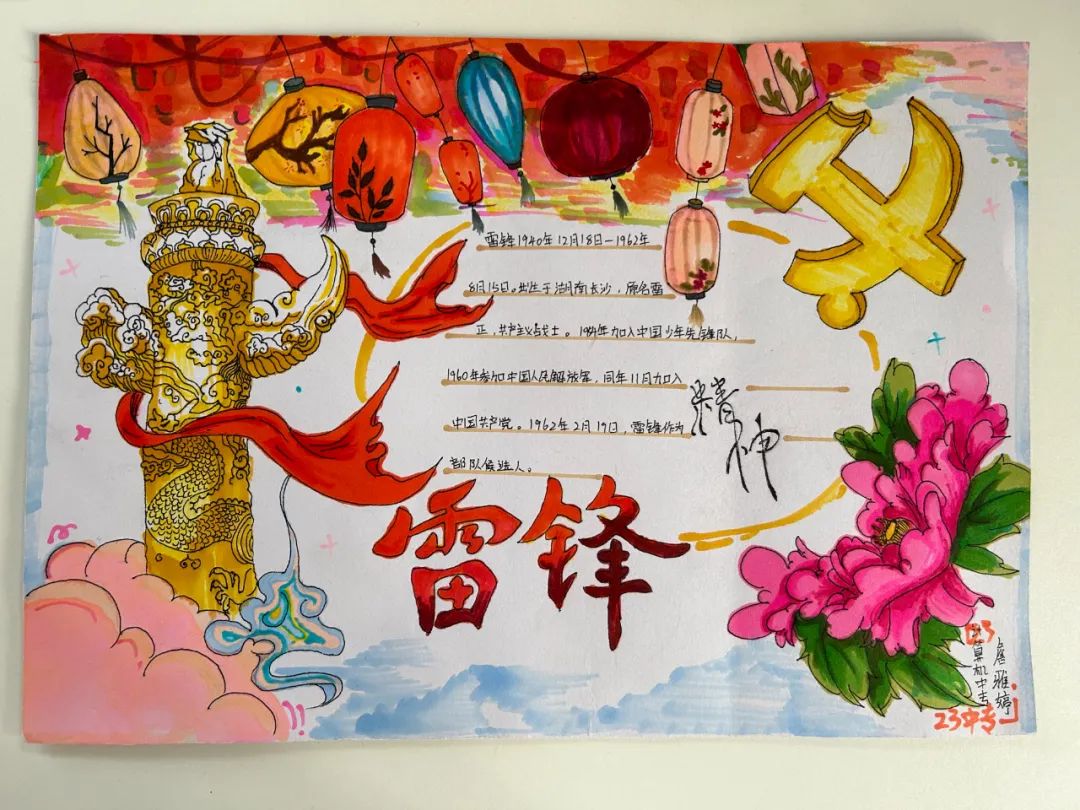 雷锋1940年12月18日—1962年
8月15日。出生于湖南长沙，原名雷
正，共产主义战士。1954年加入中国少年先锋队，
1960年参加中国人民解放军，同年11月加入
中国共产党。1962年2月19日，雷锋作为
部队候选人。
精神
雷锋
计算机中专
詹雅婷
23中专